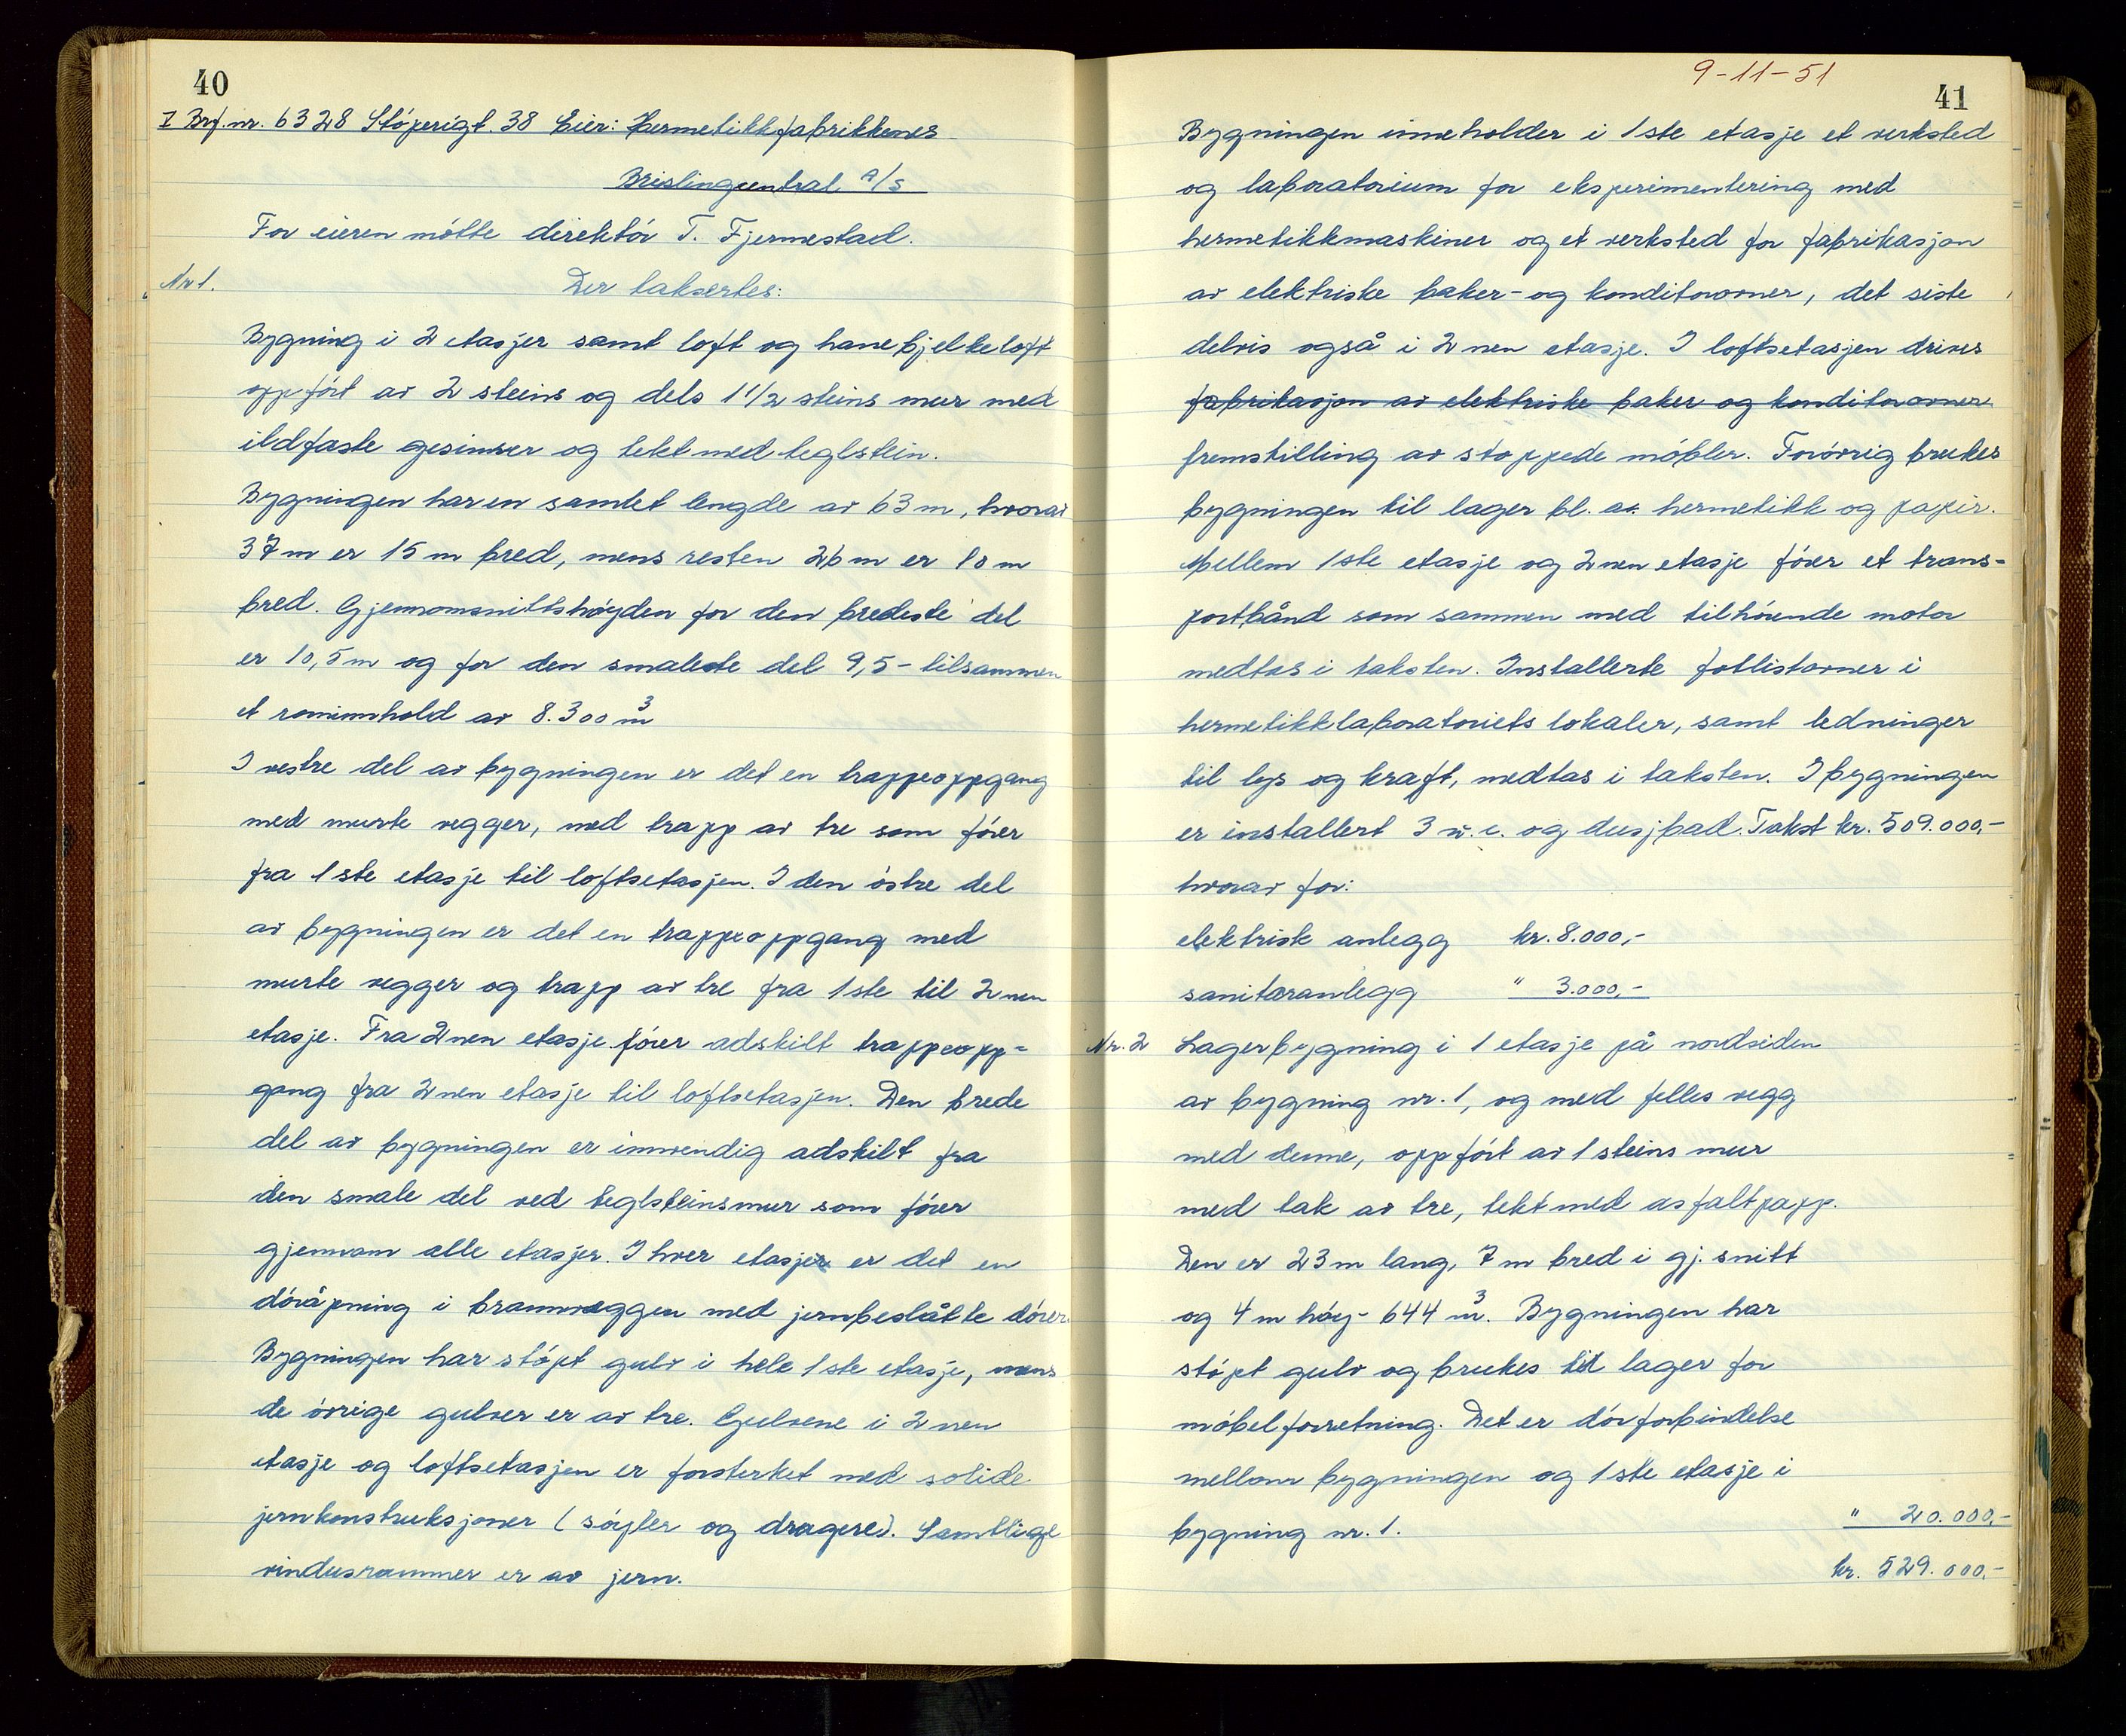 40
I Brf.nr. 6328 Støperigt. 38 Eier: Hermetikkfabrikkenes
Brislingcentral A/S
For eieren møtte direktør T. Fjermestad.
Nr 1. Der taksertes:
Bygning i 2 etasjer samt loft og hanebjelkeloft
oppført av 2 steins og dels 1 1/2 steins mur med
ildfaste gesimser og tekt med teglstein.
Bygningen har en samlet lengde av 63 m, hvorav
37 m er 15 m bred, mens resten 26 m er 10 m
bred. Gjennomsnittshøyden for den bredeste del
er 10,5 m og for den smaleste del 9,5 - tilsammen
et rominnhold av 8.300 m³
I vestre del av bygningen er det en trappeoppgang
med murte vegger, med trapp av tre som fører
fra 1ste etasje til loftsetasjen. I den østre del
av bygningen er det en trappeoppgang med
murte vegger og trapp av tre fra 1ste til 2nen
etasje. Fra 2nen etasje fører adskilt trappeopp=
gang fra 2nen etasje til loftsetasjen. Den brede
del av bygningen er innvendig adskilt fra
den smale del ved teglsteinsmur som fører
gjennom alle etasjer. I hver etasje er det en
døråpning i brannveggen med jernbeslåtte dører.
Bygningen har støpt gulv i hele 1ste etasje, mens
de øvrige gulver er av tre. Gulvene i 2nen
etasje og loftsetasjen er forsterket med solide
jernkonstruksjoner (søyler og dragere). Samtlige
vindusrammer er av jern.
9-11-51
41
Bygningen inneholder i 1ste etasje et verksted
og laboratorium for eksperimentering med
hermetikkmaskiner og et verksted for fabrikasjon
av elektriske baker- og konditorovner, det siste
delvis også i 2nen etasje. I loftsetasjen drives
fabrikasjon av elektriske baker og konditorovner
fremstilling av stoppede møbler. Forøvrig brukes
bygningen til lager bl. a. hermetikk og papir.
Mellem 1ste etasje og 2nen etasje fører et trans=
portbånd som sammen med tilhørende motor
medtas i taksten. Installerte fotlistovner i
hermetikklaboratoriets lokaler, samt ledninger
til lys og kraft, medtas i taksten. I bygningen
er installert 3 w.c. og dusjbad. Takst kr. 509.000,-
hvorav for:
elektrisk anlegg kr. 8.000,-
sanitæranlegg " 3.000,-
Nr. 2 Lagerbygning i 1 etasje på nordsiden
av bygning nr. 1, og med felles vegg
med denne, oppført av 1 steins mur
med tak av tre, tekt med asfaltpapp.
Den er 23 m lang, 7 m bred i gj. snitt
og 4 m høy - 644 m³. Bygningen har
støpt gulv og brukes til lager for
møbelforretning. Det er dørforbindelse
mellom bygningen og 1ste etasje i
bygning nr. 1. " 20.000,-
kr. 529.000,-